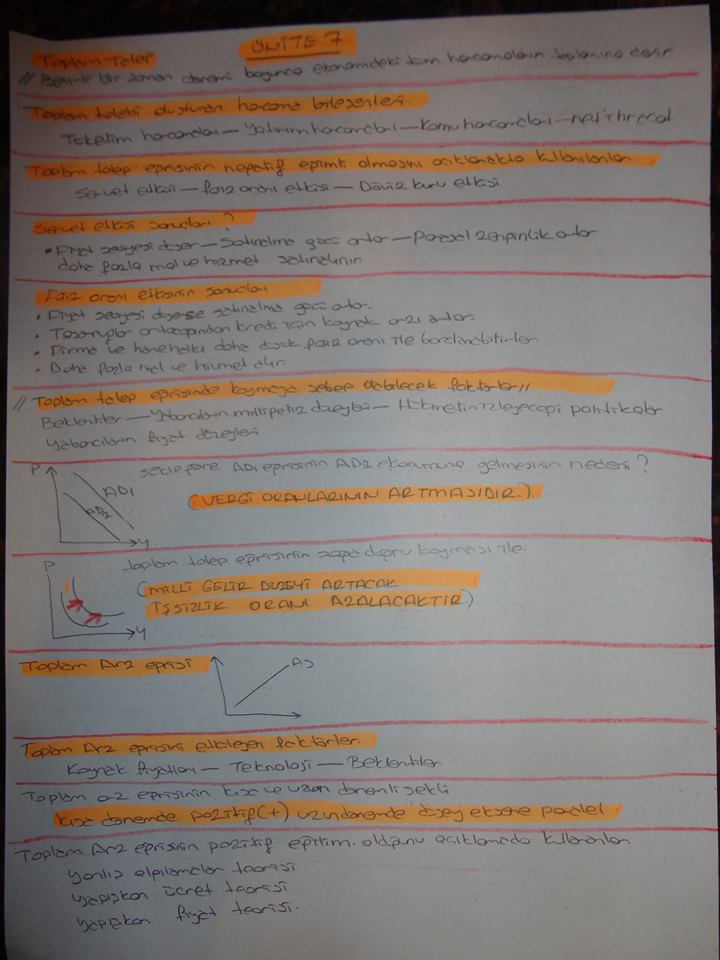 ÜNİTE 7
Toplam Talep
// Belirli bir zaman dönemi boyunca ekonomideki tüm harcamaların toplamına denir
Toplam talebi oluşturan harcama bileşenleri.
Tüketim harcamaları — Yatırım harcamaları — Kamu harcamaları — net ihracat
Toplam talep eğrisinin negatif eğimli olmasını açıklamakta kullanılanlar
Servet etkisi — faiz oranı etkisi — Döviz kuru etkisi
Servet etkisi sonuçları?
• Fiyat seviyesi düşer — Satınalma gücü artar — Parasal zenginlik artar
daha fazla mal ve hizmet satınalınır.
Faiz oranı etkisinin sonuçları
• Fiyat seviyesi düşerse satınalma gücü artar.
• Tasarruflar artacağından kredi için kaynak arzı artar.
• Firma ve hanehalkı daha düşük faiz oranı ile borçlanabilirler
• Daha fazla mal ve hizmet alır.
// Toplam talep eğrisinde kaymaya sebep olabilecek faktörler //
Beklentiler — Yabancıların milli gelir düzeyleri — Hükmetin izleyeceği politikalar
Yabancıların fiyat düzeyleri
P
AD1
AD2
Y
şekle göre AD1 eğrisinin AD2 konumuna gelmesinin nedeni?
(VERGİ ORANLARININ ARTMASIDIR.)
P
Y
toplam talep eğrisinin sağa doğru kayması ile.
(MİLLİ GELİR DÜZEYİ ARTACAK
İŞSİZLİK ORANI AZALACAKTIR.)
Toplam Arz eğrisi
AS
Toplam Arz eğrisini etkileyen faktörler.
Kaynak fiyatları — Teknoloji — Beklentiler
Toplam arz eğrisinin kısa ve uzun dönemli şekli
kısa dönemde pozitif (+) uzun dönemde düşey eksene paralel
Toplam Arz eğrisinin pozitif eğitim. olduğunu açıklamada kullanılanlar
yanlış algılamalar teorisi.
yapışkan ücret teorisi.
yapışkan fiyat teorisi.